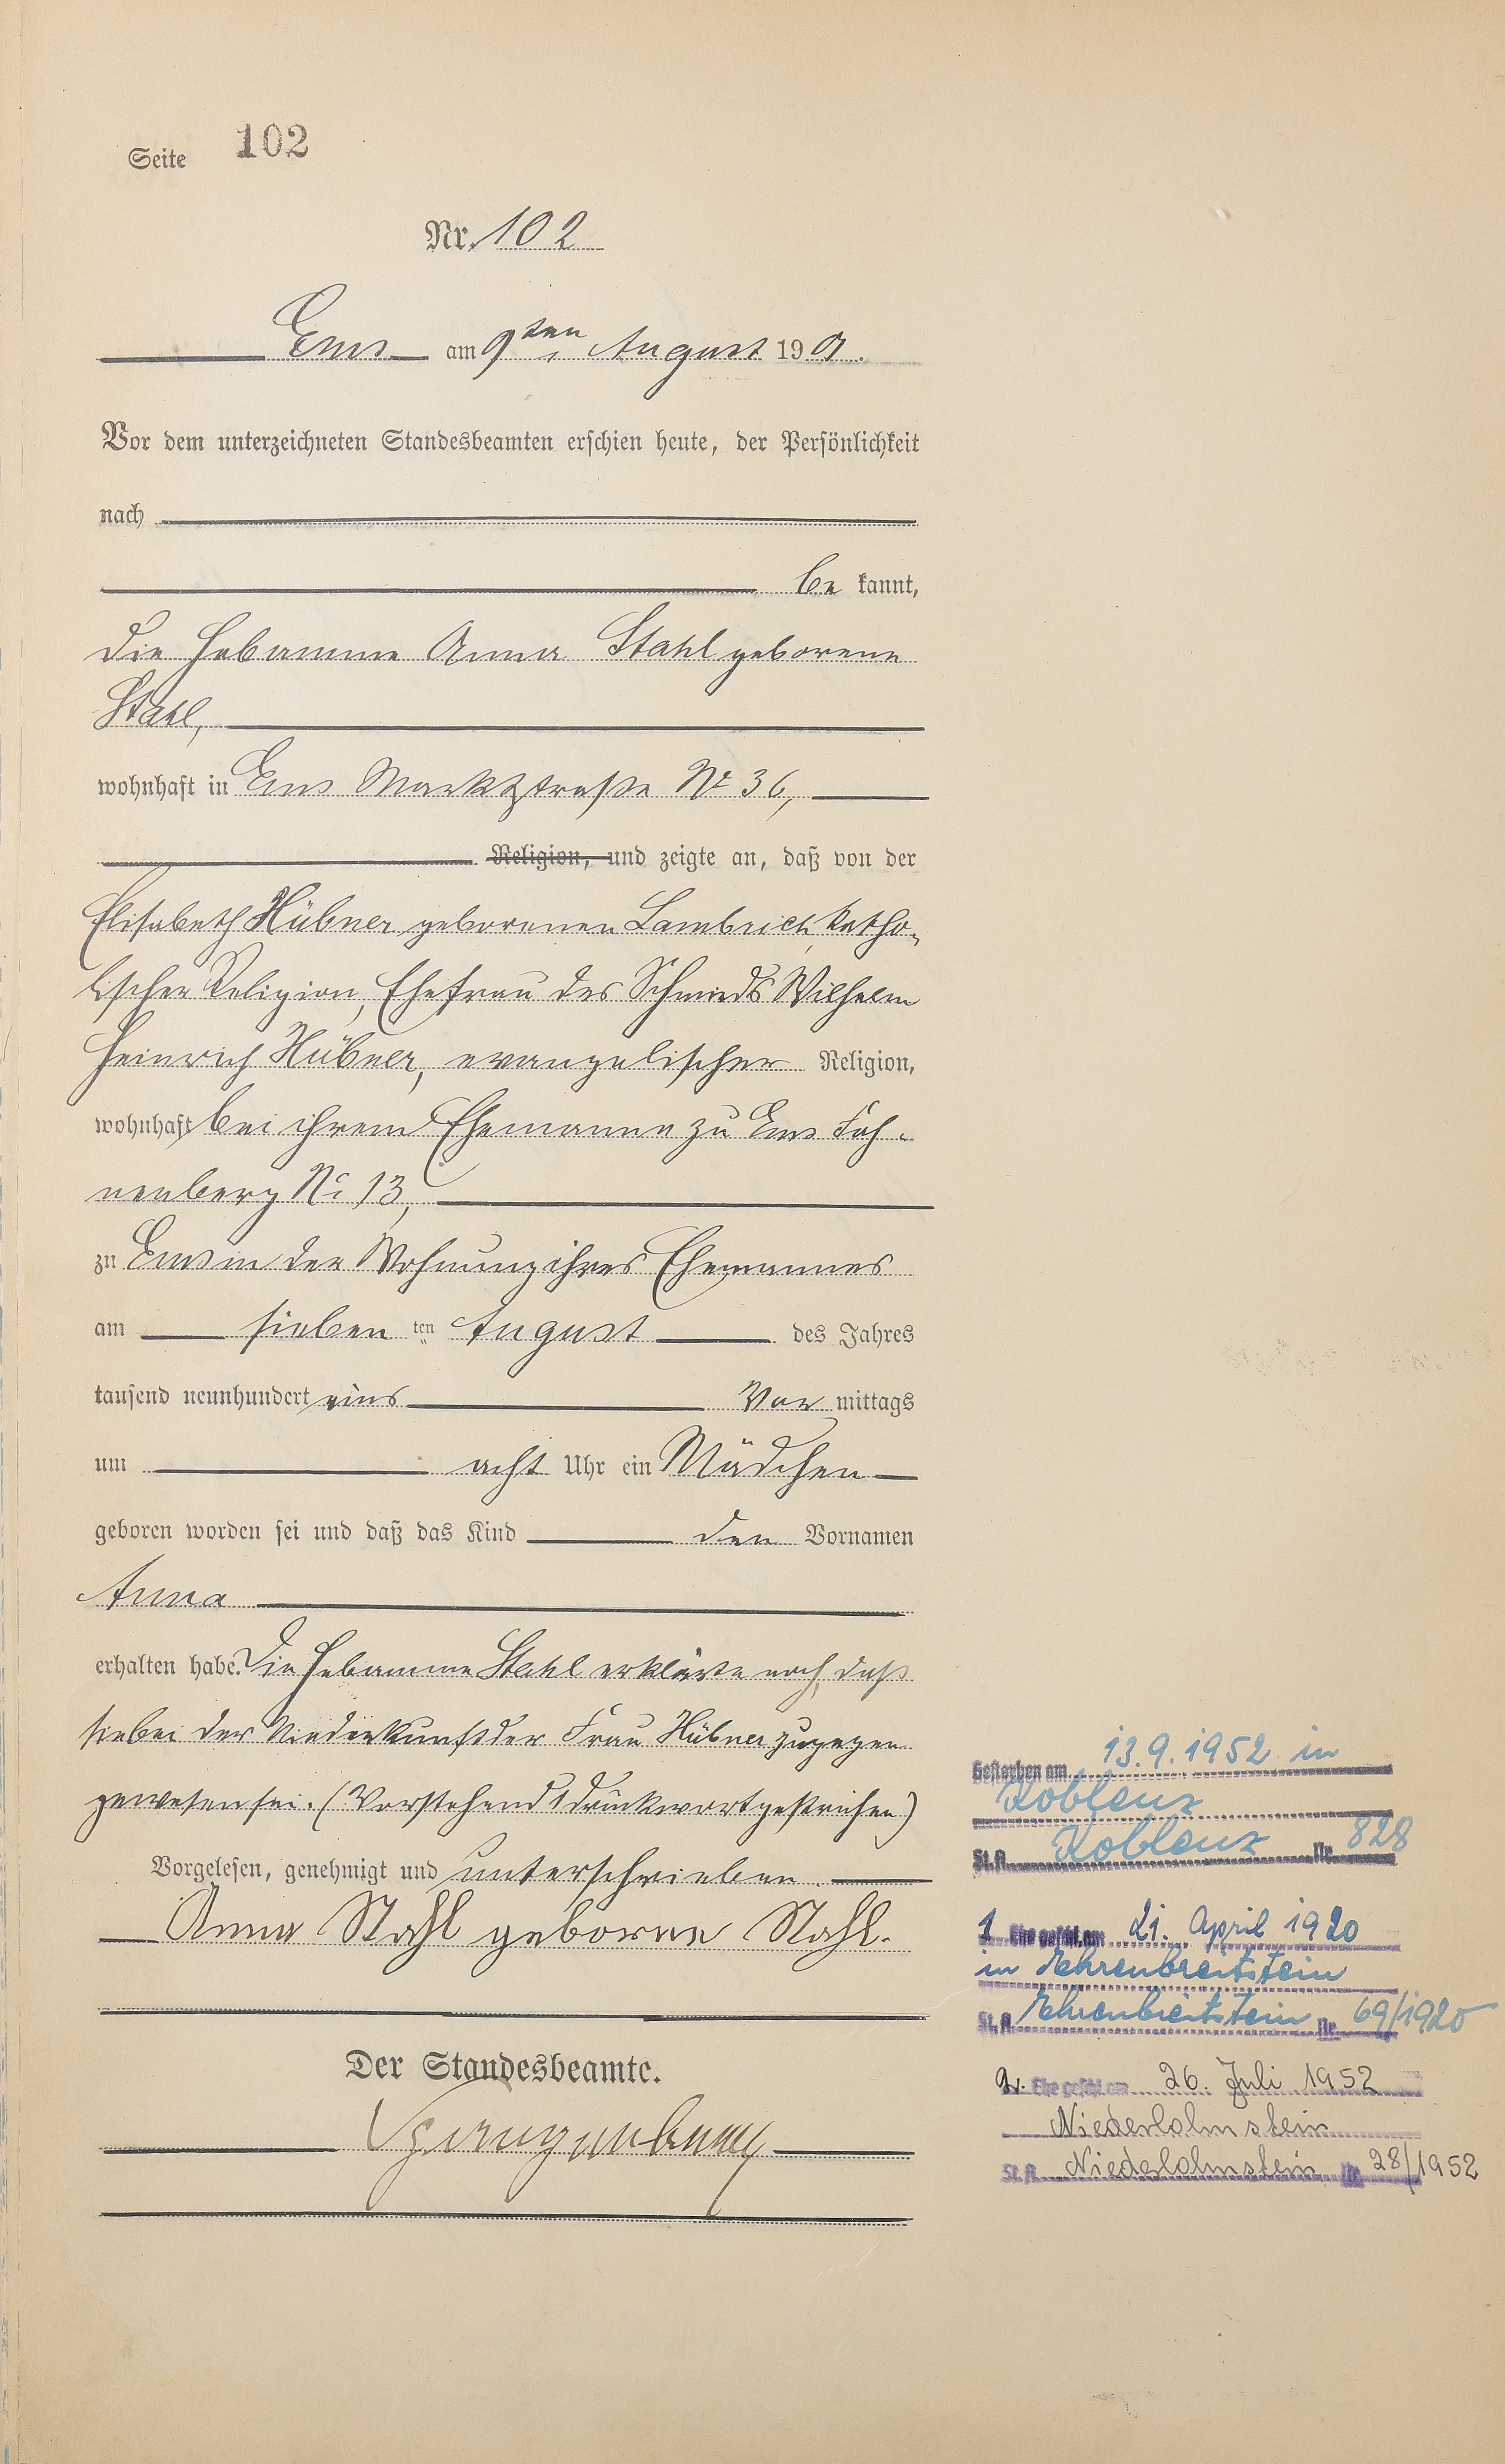 Seite 102
Nr. 102
Ems am 9ten August 190 .
Vor dem unterzeichneten Standesbeamten erschien heute, der Persönlichkeit
nach
be kannt,
die Hebamme Anna Stahl geborene
Stahl,
wohnhaft in Ems Marktstraße No 36,
Religion, und zeigte an, daß von der
Elisabeth Hübner geborenen Lambrich, katho-
lischer Religion, Ehefrau des Schmieds Wilhelm
Heinrich Hübner, evangelischer Religion,
wohnhaft bei ihrem Ehemanne zu Ems Fah-
nenberg No 13,
zu Ems in der Wohnung ihres Ehemannes
am sieben ten August des Jahres
tausend neunhundert eins Vor mittags
um acht Uhr ein Mädchen
geboren worden sei und daß das Kind den Vornamen
Anna
erhalten habe. Die Hebamme Stahl erklärte noch, daß
sie bei der Niederkunft der Frau Hübner zugegen
gewesen sei. (Vorstehend 1 Druckwort gestrichen)
Vorgelesen, genehmigt und unterschrieben.
Anna Stahl geborene Stahl.
Der Standesbeamte.
Gestorben am 13.9.1952 in
Koblenz
St.A. Koblenz Nr. 828
1. Ehe geschl. am 21. April 1920
in Ehrenbreitstein
St.A. Ehrenbreitstein Nr. 69/1920
2. Ehe geschl. am 26. Juli 1952
Niederlahnstein
St.A. Niederlahnstein Nr. 28/1952